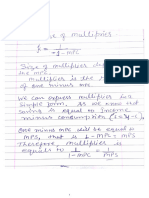 Size of multiplier
k = 1
Size of multiplier
the mpc.
Multiplier is the
of one minus mpc
We can express multiplier in
simple form, as we know that
saving is equal to income
minus consumption
One minus mpc will be equal to
mps, that is 1 - mpc = mps
Therefore, multiplier is
equals to 1 1
1-mpc mps